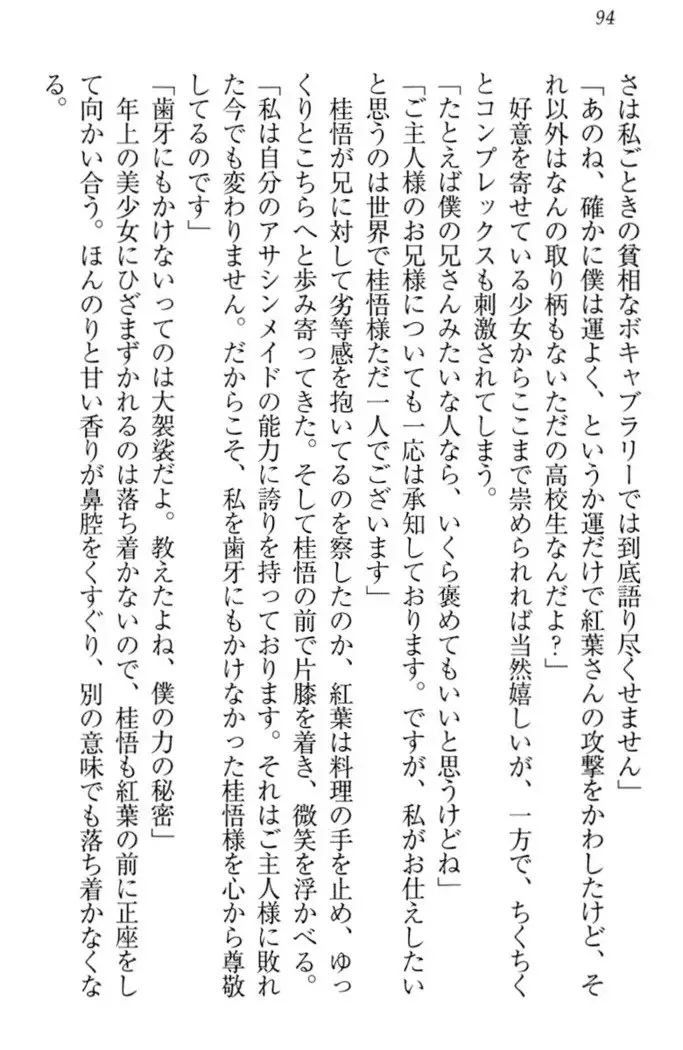 94
さは私ごときの貧相なボキャブラリーでは到底語り尽くせません」
「あのね、確かに僕は運よく、というか運だけで紅葉さんの攻撃をかわしたけど、そ
れ以外はなんの取り柄もないただの高校生なんだよ？」
好意を寄せている少女からここまで崇められれば当然嬉しいが、一方で、ちくちく
とコンプレックスも刺激されてしまう。
「たとえば僕の兄さんみたいな人なら、いくら褒めてもいいと思うけどね」
「ご主人様のお兄様についても一応は承知しております。ですが、私がお仕えしたい
と思うのは世界で桂悟様ただ一人でございます」
桂悟が兄に対して劣等感を抱いてるのを察したのか、紅葉は料理の手を止め、ゆっ
くりとこちらへと歩み寄ってきた。そして桂悟の前で片膝を着き、微笑を浮かべる。
「私は自分のアサシンメイドの能力に誇りを持っております。それはご主人様に敗れ
た今でも変わりません。だからこそ、私を歯牙にもかけなかった桂悟様を心から尊敬
してるのです」
「歯牙にもかけないってのは大袈裟だよ。教えたよね、僕の力の秘密」
年上の美少女にひざまずかれるのは落ち着かないので、桂悟も紅葉の前に正座をし
て向かい合う。ほんのりと甘い香りが鼻腔をくすぐり、別の意味でも落ち着かなくな
る。